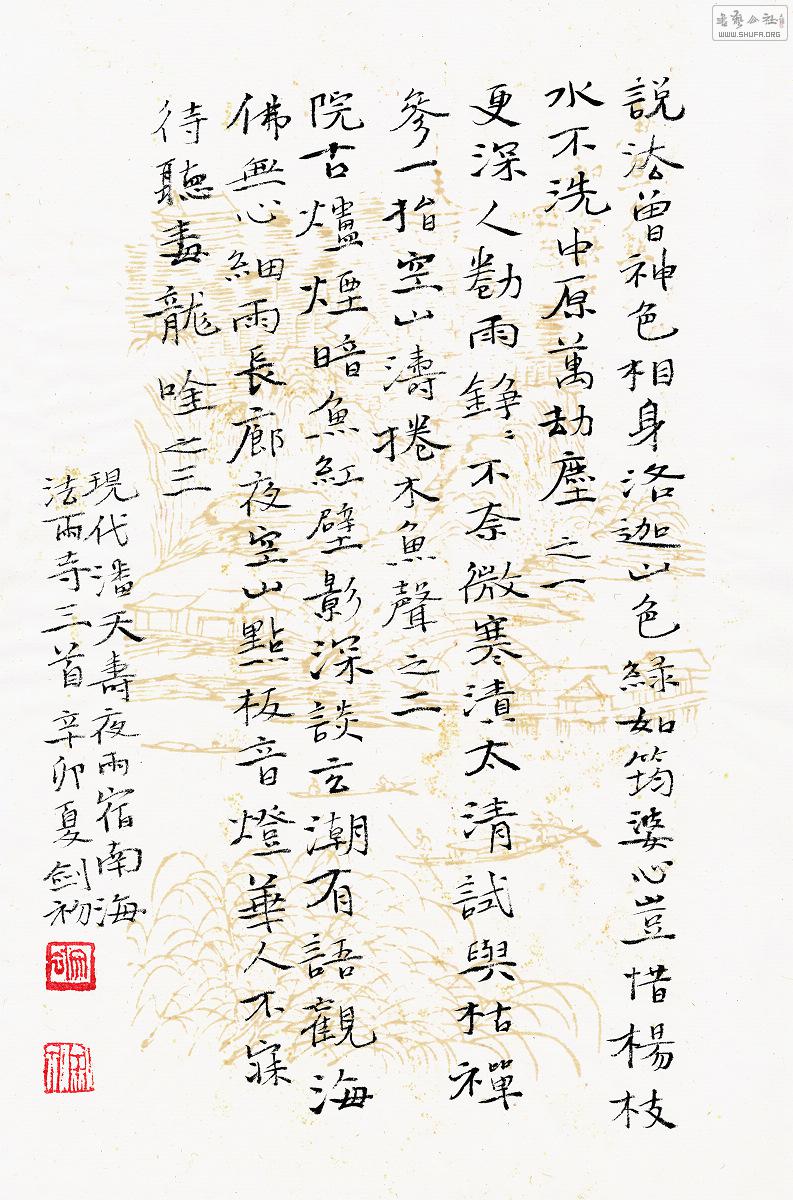 說法曾神色相身洛迦山色綠如筠婆心豈惜楊枝
水不洗中原萬劫塵之一
更深人勌雨錚〻不奈微寒漬太清試與枯禪
參一指空山濤捲木魚聲之二
院古爐煙暗魚紅壁影深談玄潮有語觀海
佛無心細雨長廊夜空山點板音燈華人不寐
待聽畫龍唫之三
現代潘天壽夜雨宿南海
法雨寺三首辛卯夏劍初
書藝公社
WWW.SHUFA.ORG